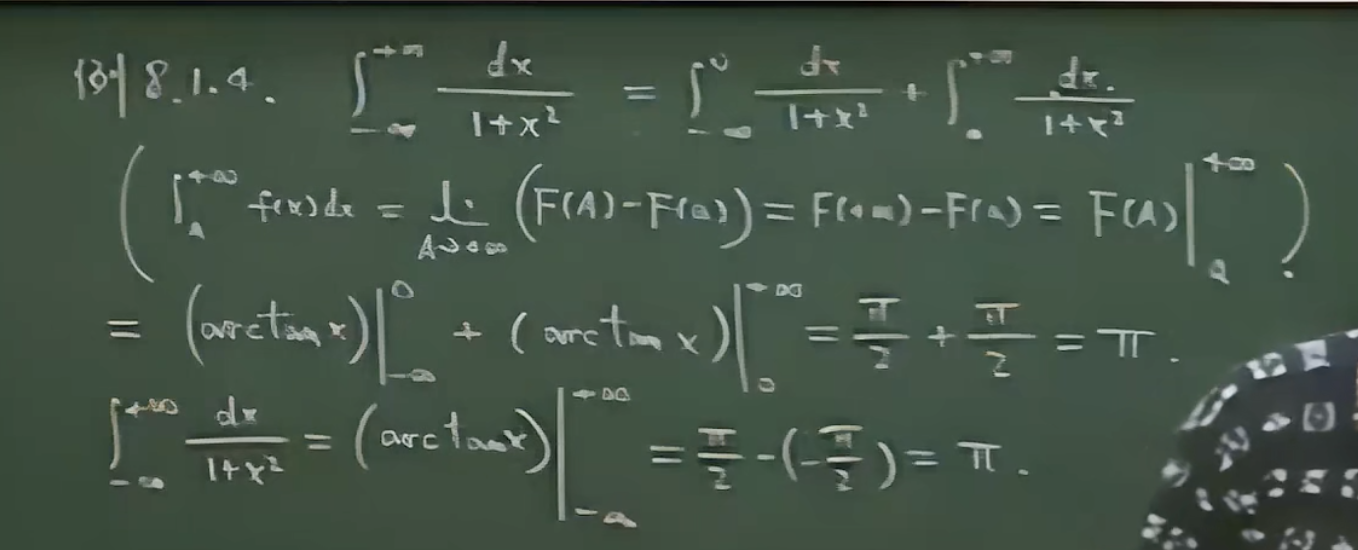 例 8.1.4. ∫_{-∞}^{+∞} dx/(1+x²) = ∫_{-∞}^{0} dx/(1+x²) + ∫_{0}^{+∞} dx/(1+x²)
( ∫_{a}^{+∞} f(x)dx = lim_{A→+∞} (F(A)-F(a)) = F(+∞)-F(a) = F(A)|_{a}^{+∞} ).
= (arctan x)|_{-∞}^{0} + (arctan x)|_{0}^{+∞} = π/2 + π/2 = π.
∫_{-∞}^{+∞} dx/(1+x²) = (arctan x)|_{-∞}^{+∞} = π/2 - (-π/2) = π.